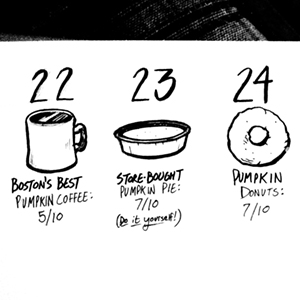 22
BOSTON'S BEST
PUMPKIN COFFEE:
5/10
23
STORE-BOUGHT
PUMPKIN PIE:
7/10
(Do it yourself!)
24
PUMPKIN
DONUTS:
7/10